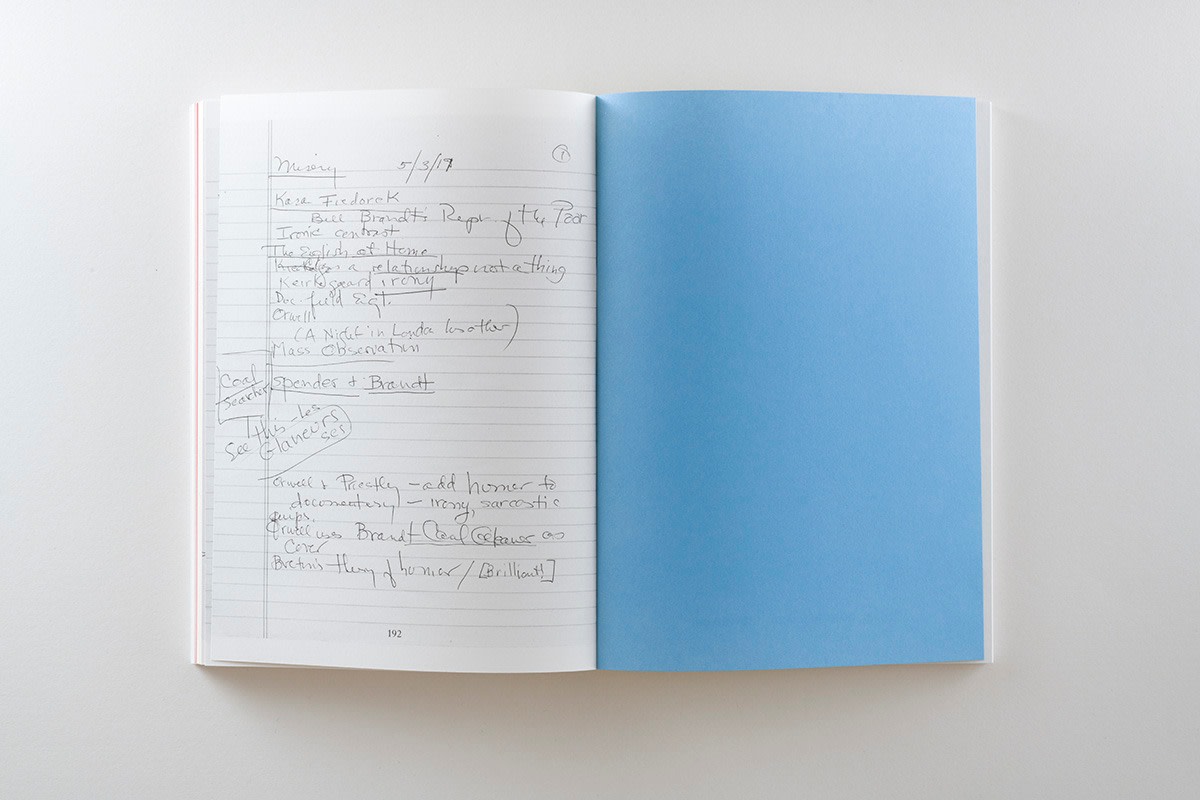 Misery 5/3/17 ①
Kara Fiedorek
Bill Brandt's Repr of the Poor
Ironic contrast
The English at Home
is a relationship not a thing
Keirkegaard irony
Doc. field Eqt.
Orwell
(A Night in London
Mass Observation
Coal
Searcher
Spender + Brandt
See This - Les
Glaneurs
ses
Orwell + Priestly - add humor to
documentary - irony, sarcastic
quips.
Orwell uses Brandt Coal as
Cover
Breton's theory of humor / [Brilliant!]
192